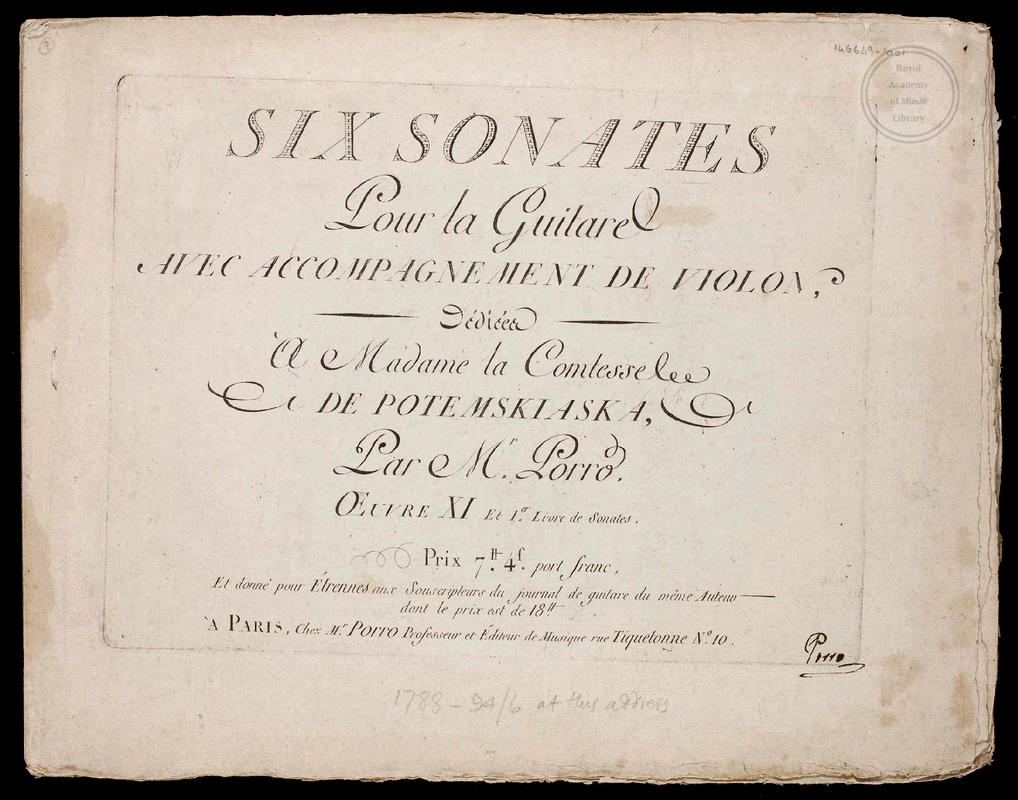 146649-1001
Royal
Academy
of Music
Library
SIX SONATES
Pour la Guitare
AVEC ACCOMPAGNEMENT DE VIOLON,
Dédiées
A Madame la Comtesse
DE POTEMSKIASKA,
Par Mr. Porro.
ŒUVRE XI Et 1er. Livre de Sonates.
Prix 7tt 4s. port franc,
Et donné pour Étrennes aux Souscripteurs du journal de guitare du même Auteur
dont le prix est de 18tt
A PARIS, Chez Mr. PORRO Professeur et Éditeur de Musique rue Tiquetonne No. 10.
Porro
1788 - 94/6 at this address